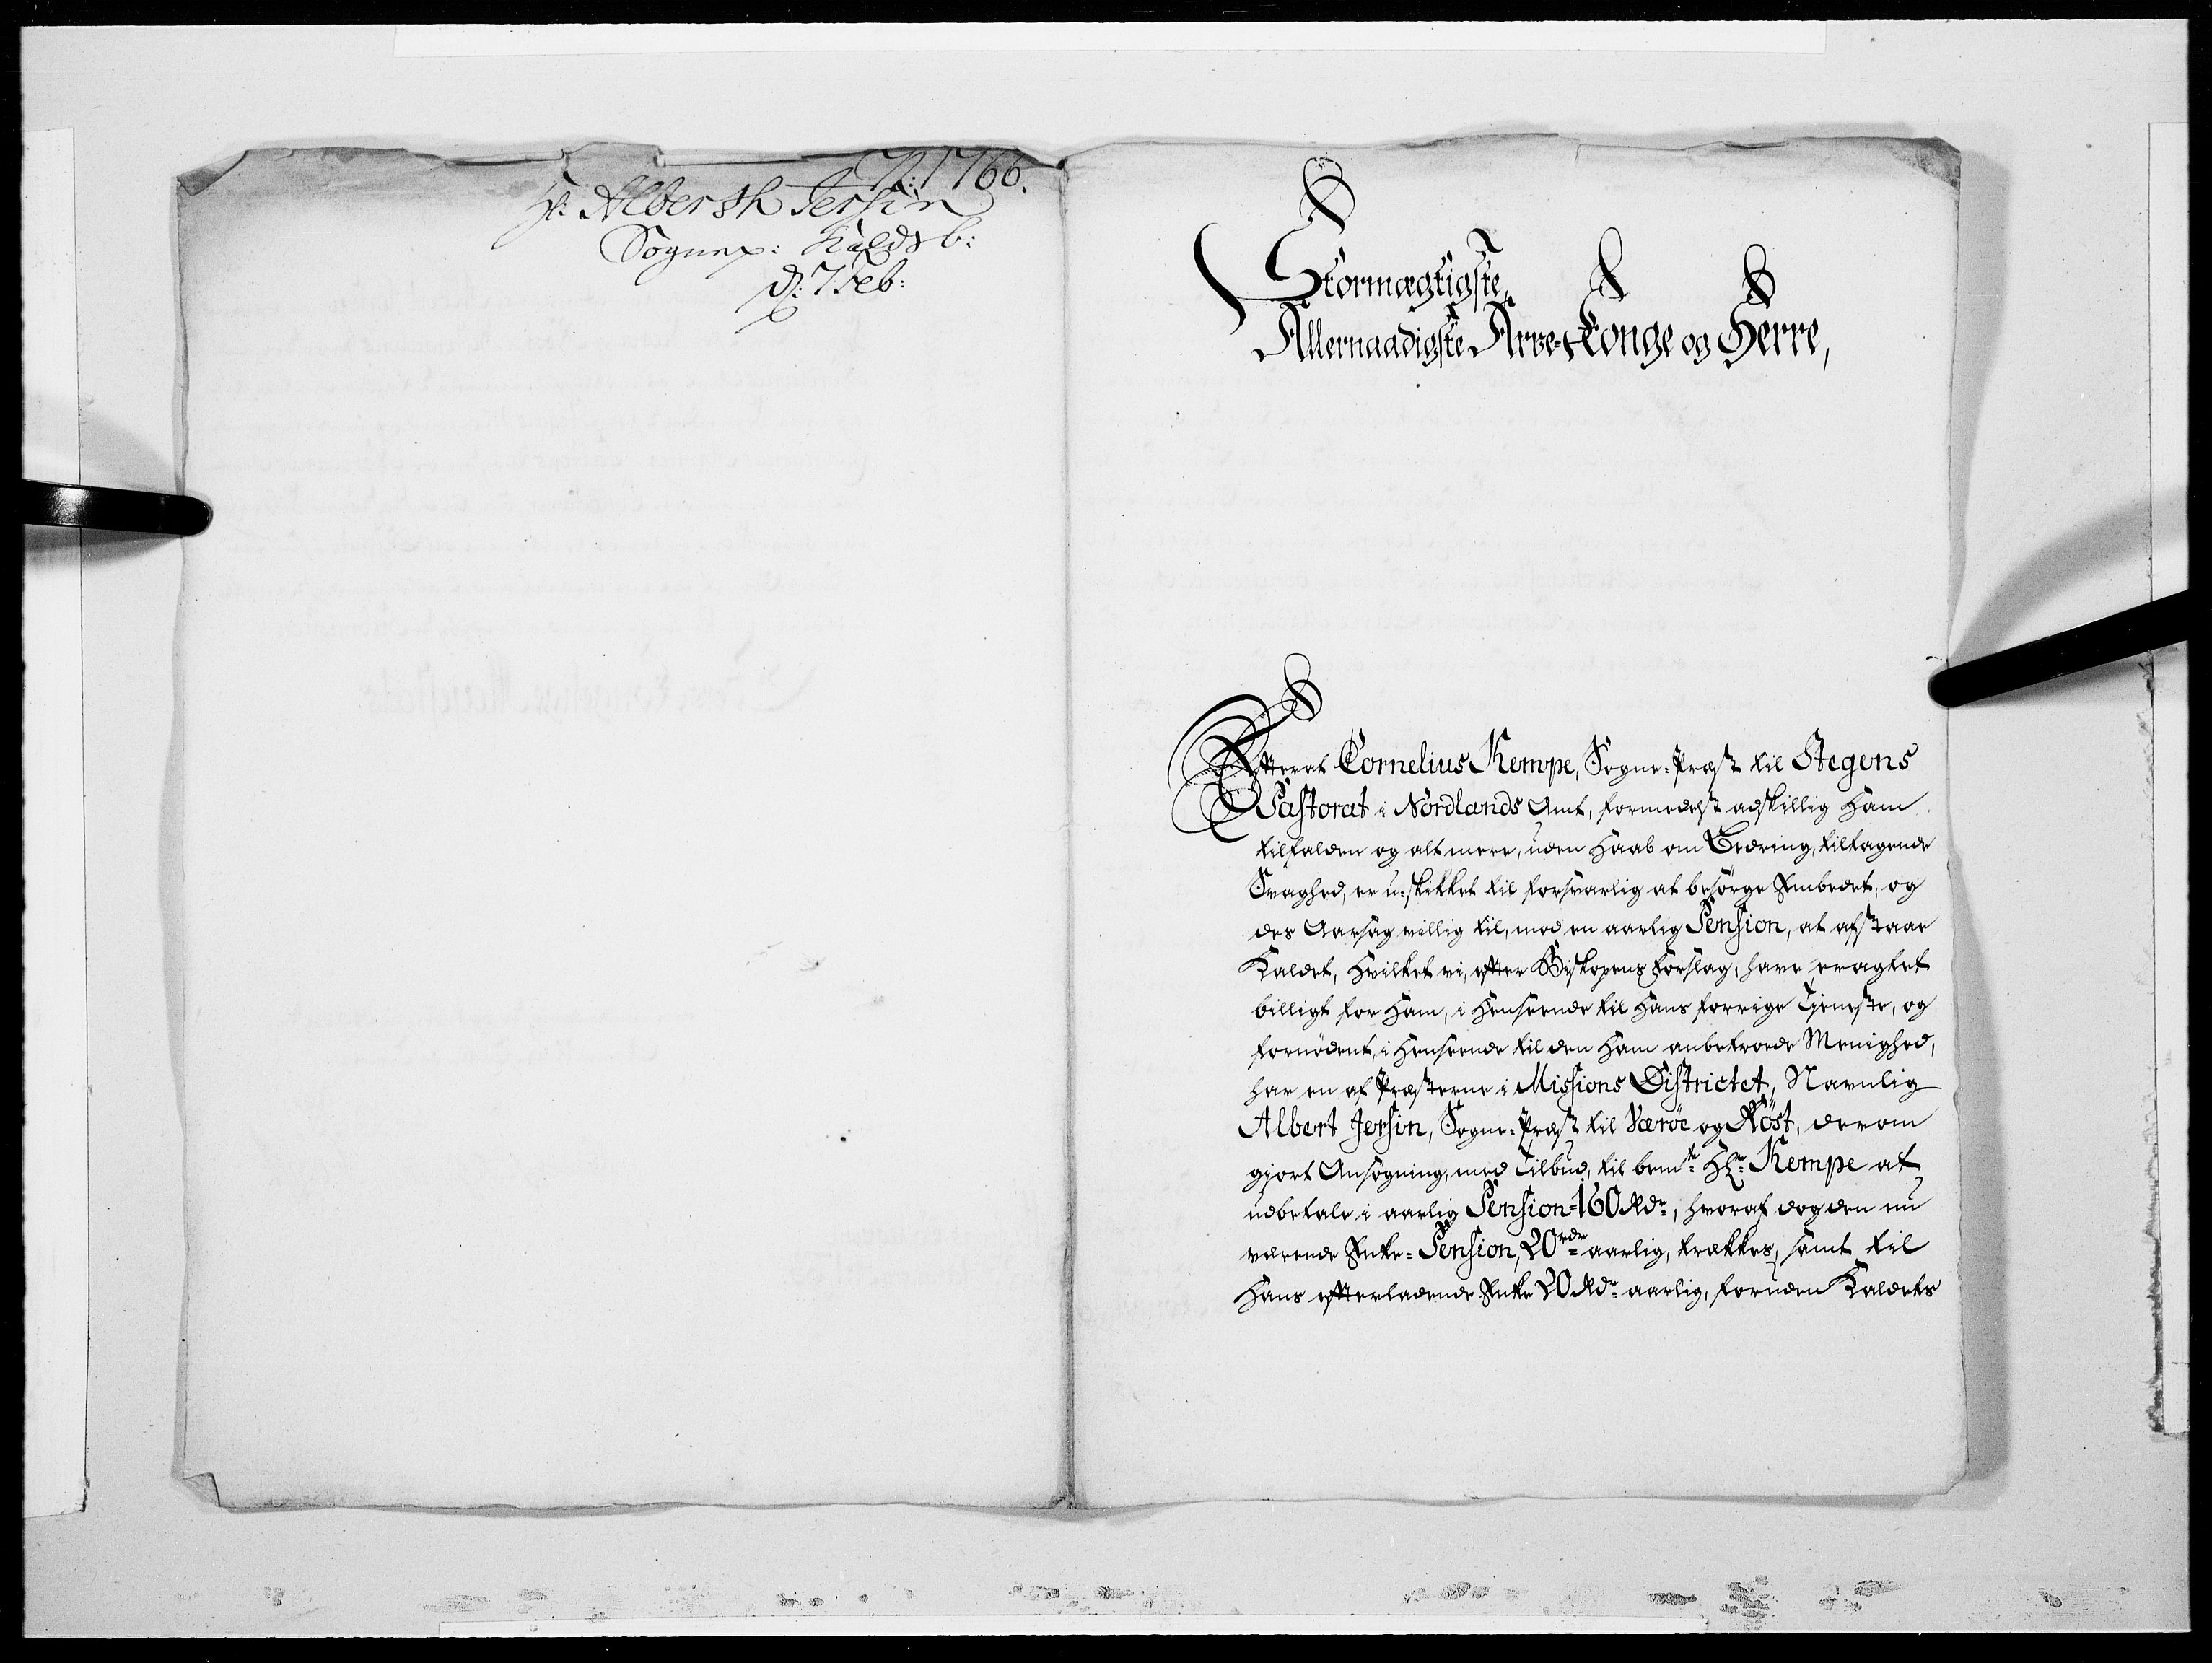 N: 1766.
Hr: Albersh Jersin
Sognep: Kaldsb:
d: 7 Feb:
Stormægtigste,
Allernaadigste Arve-Konge og Herre,
Efterat Cornelius Kempe, Sogne-Præst til Stegens
Pastorat i Nordlands Amt, formedelst adskillig Ham
tilfalden og alt mere, uden Haab om Bedring, tiltagende
Svaghed, er u-skikket til forsvarlig at besørge Embedet, og
des Aarsag villig til, mod en aarlig Pension, at afstaae
Kaldet, Hvilket vi, efter Biskopens Forslag, have eragtet
billigt for Ham, i Henseende til Hans forrige Tjeneste, og
fornødent, i Henseende til den Ham anbetroede Menighed,
har en af Præsterne i Missions Districtet, Navnlig
Albert Jersin, Sogne-Præst til Værøe og Röst, derom
gjort Ansøgning, med Tilbud, til bemte Hr: Kempe at
udbetale i aarlig Pension 160 Rdr:, hvoraf dog den nu
værende Enke-Pension, 20 rdr aarlig, trækkes, samt til
Hans efterladende Enke 20 Rdr: aarlig, foruden Kaldets